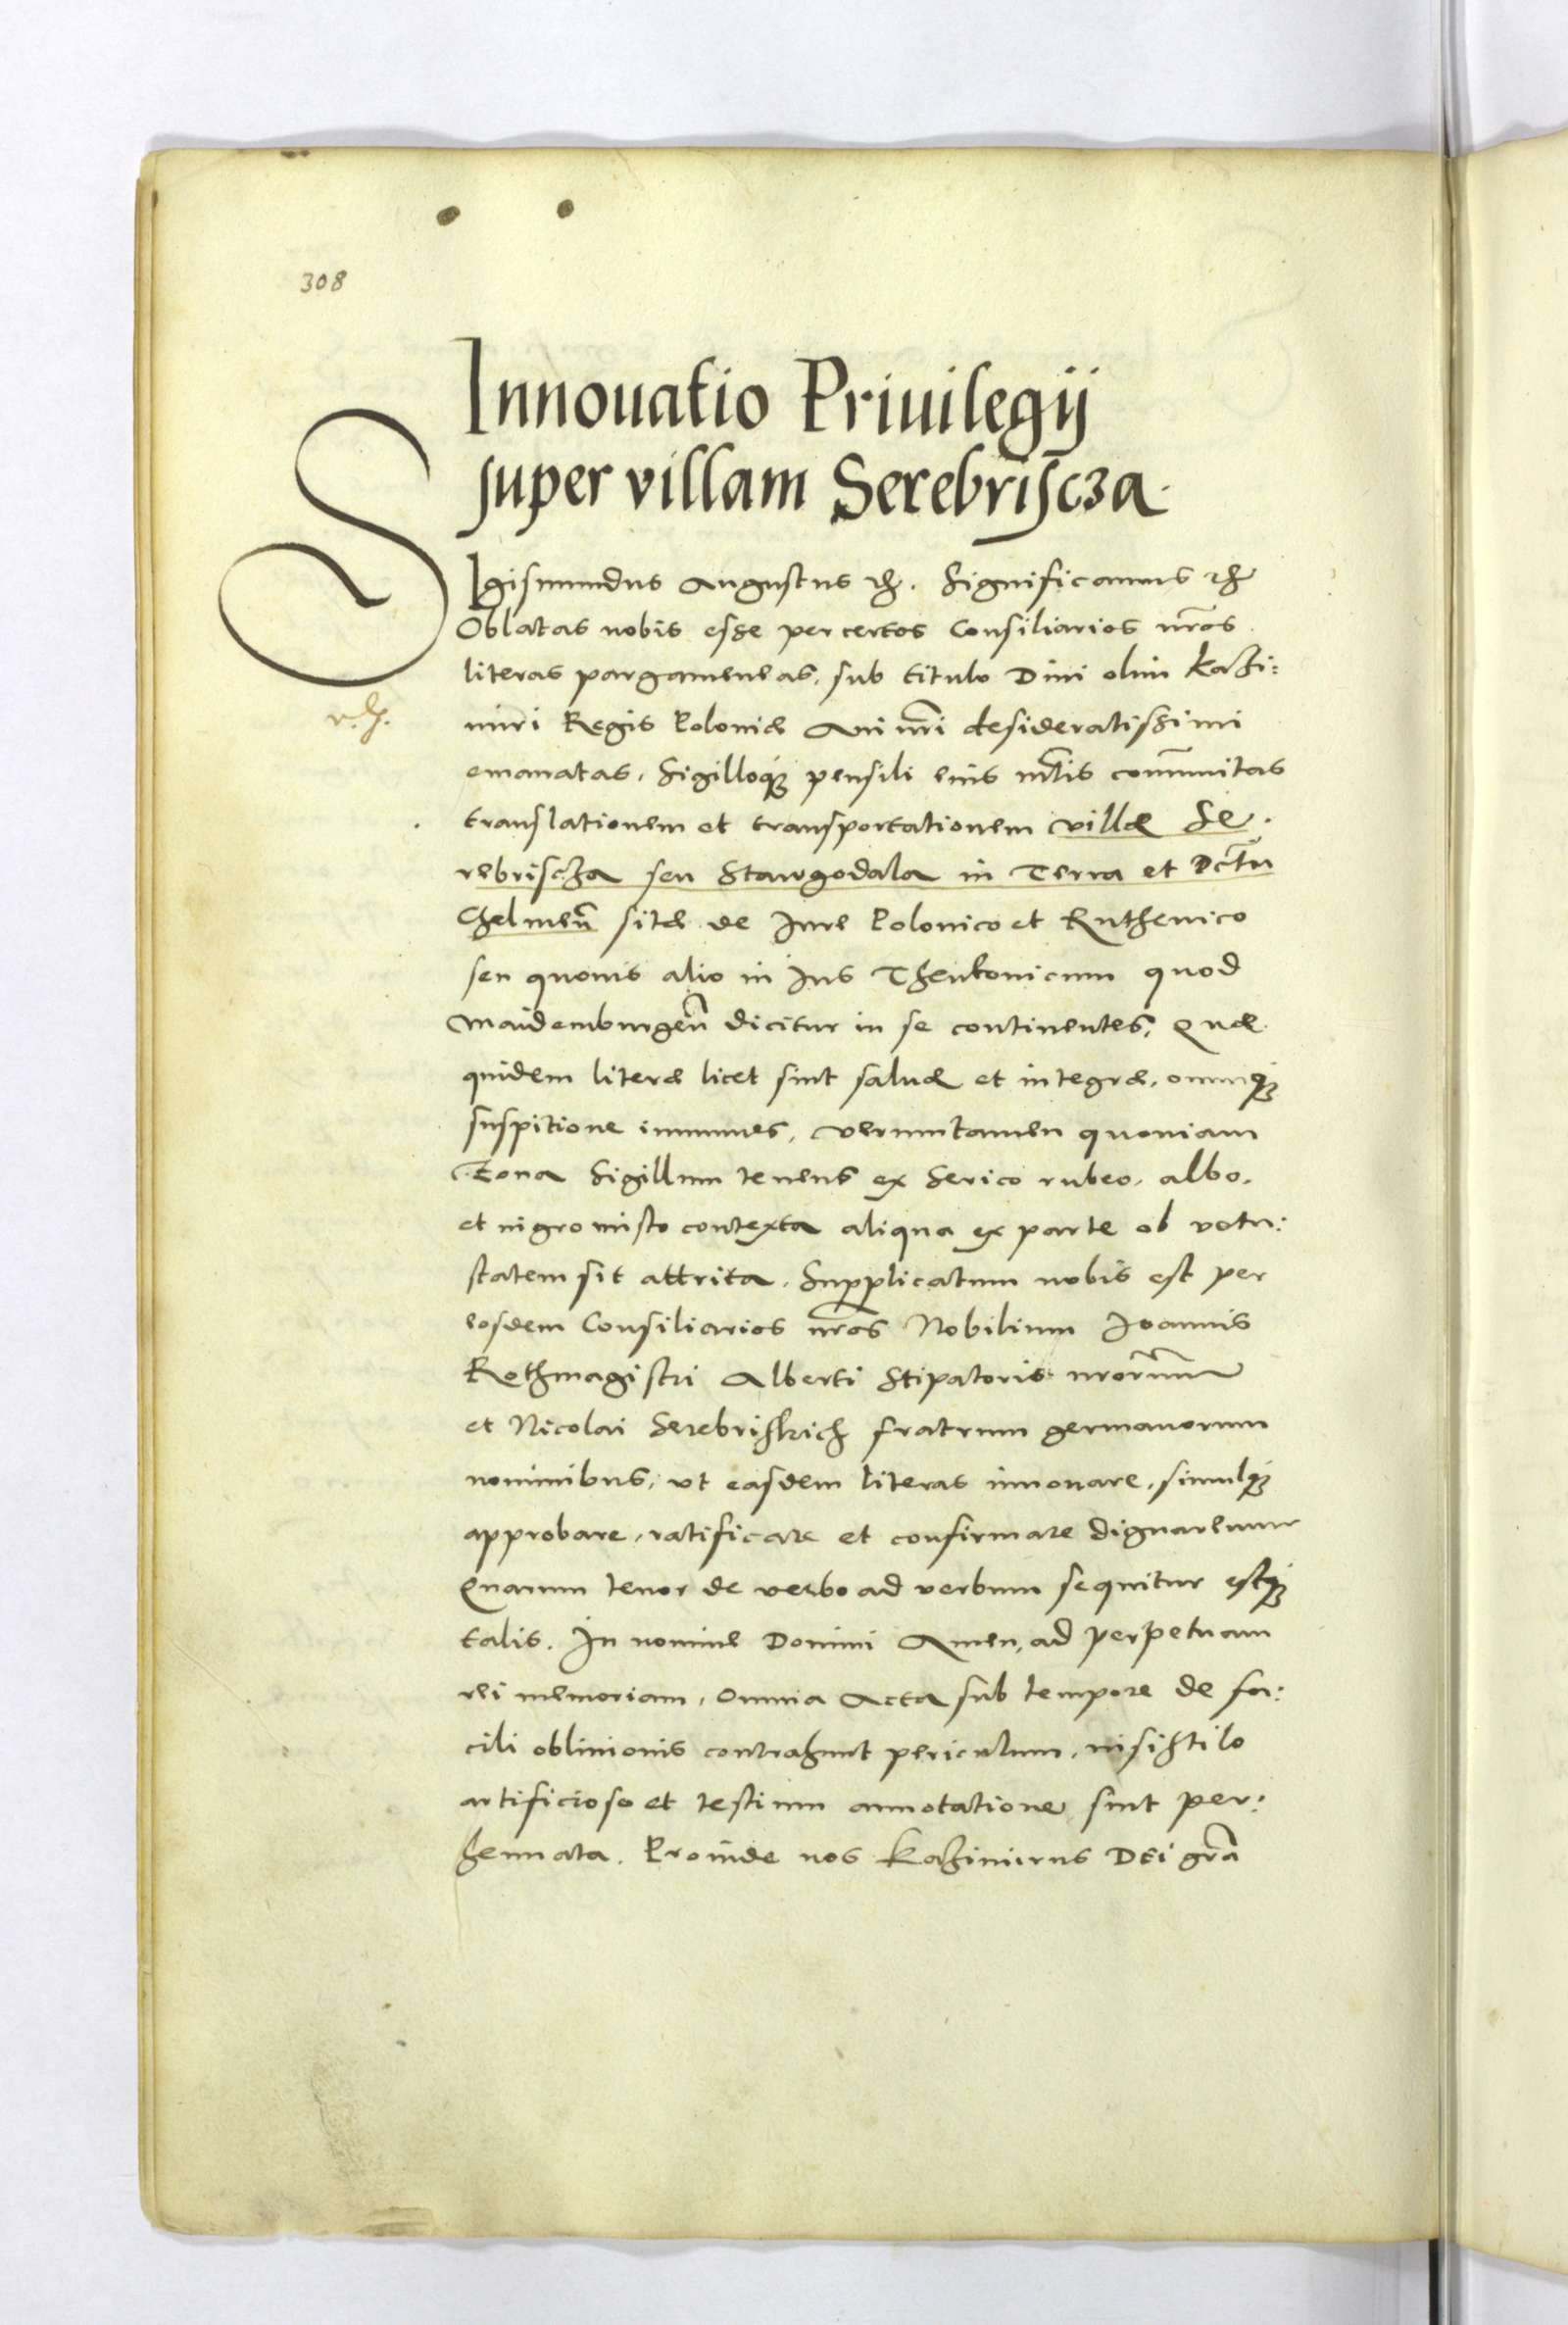 308
Innouatio Priuilegij
super villam Serebriscza.
SIgismundus Augustus etc. Significamus etc
Oblatas nobis esse per certos Consiliarios nr̃os
literas pargameneas, sub titulo Diui olim Kazi:
miri Regis Poloniæ Aui nr̃i desideratissimi
emanatas, Sigilloq; pensili eius mtis com̃unitas
translationem et transportationem villæ Se.
rebriscza seu Stawgodala in Terra et Dctũ
Chelmeñ sitæ de Jure Polonico et Ruthenico
seu quouis alio in Jus Theutonicum quod
Maidemburgeñ dicitur in se continentes, Quæ
quidem literæ licet sint saluæ et integræ, omniq;
suspitione immunes, veruntamen quoniam
Zona Sigillum tenens ex Serico rubeo, albo,
et nigro misto contexta aliqua ex parte ob vetu:
statem sit attrita. Supplicatum nobis est per
eosdem Consiliarios nr̃os Nobilium Joannis
Rothmagistri Alberti Stipatoris nrorum
et Nicolai Serebriskich fratrum germanorum
nominibus, vt easdem literas innouare, simulq;
approbare, ratificare et confirmare dignaremur
Quarum tenor de verbo ad verbum sequitur estq;
talis. In nomine Domini Amen, ad perpetuam
rei memoriam, Omnia Acta sub tempore de fa:
cili obliuionis contrahunt periculum, nisi stilo
artificioso et testium annotatione sint per:
hennata. Proinde nos Kazimirus Dei gr̃a